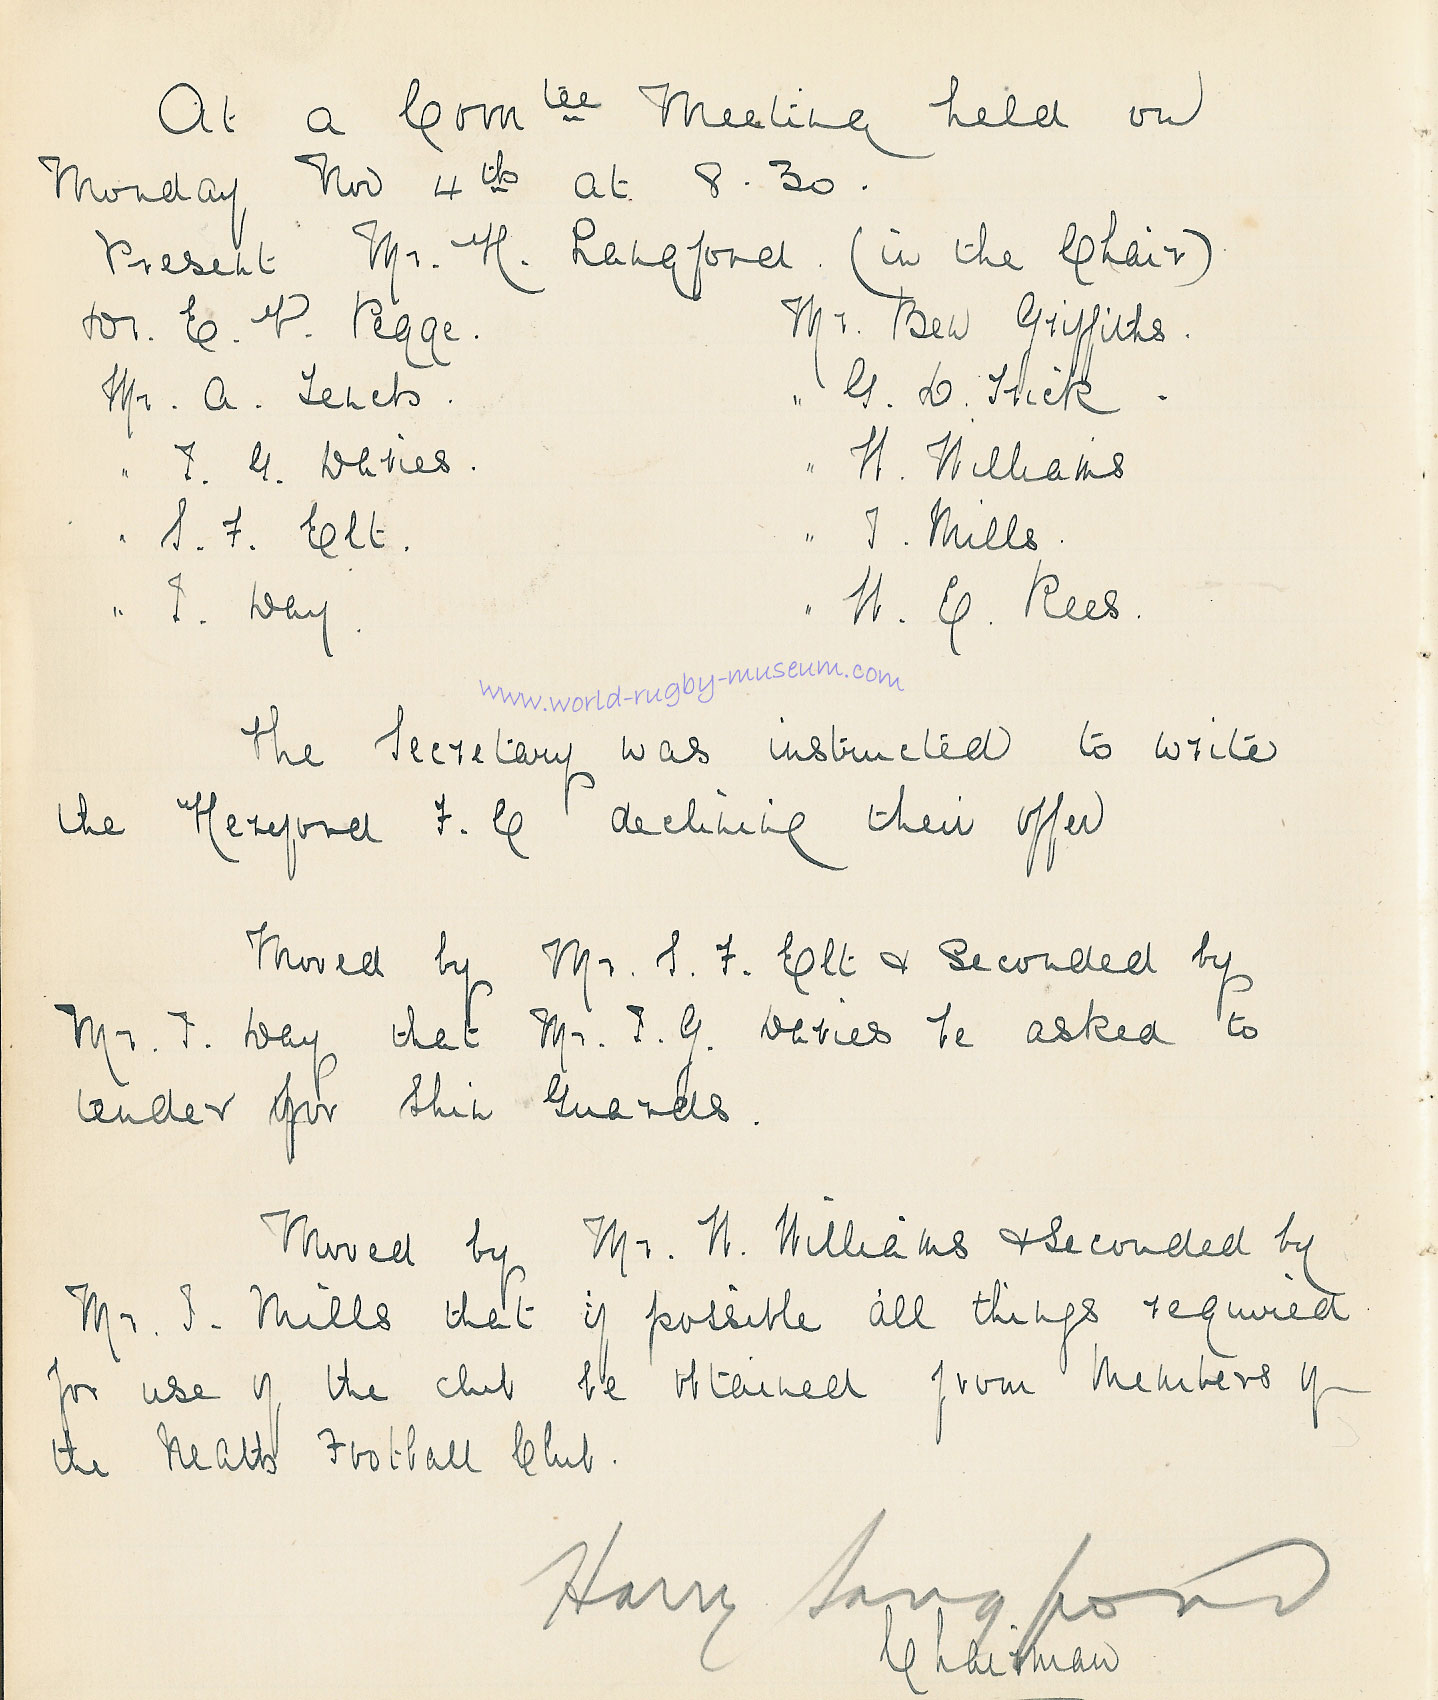 At a Com^tee Meeting held on
Monday Nov 4th at 8.30.
Present Mr. H. Langford. (in the Chair)
Dr. E. V. Pegge. Mr. Ben Griffiths.
Mr. A. Lewis. " G. D. Trick.
" T. G. Davies. " W. Williams
" S. F. Elt. " T. Mills.
" T. Day. " W. E. Rees.
www.world-rugby-museum.com
The Secretary was instructed to write
the Hereford F. C declining their offer
Moved by Mr. S. F. Elt & Seconded by
Mr. T. Day that Mr. T. G. Davies be asked to
tender for Shin Guards.
Moved by Mr. W. Williams & Seconded by
Mr. T. Mills that if possible all things required
for use of the club be obtained from Members of
the Neath Football Club.
Harry Langford
Chairman